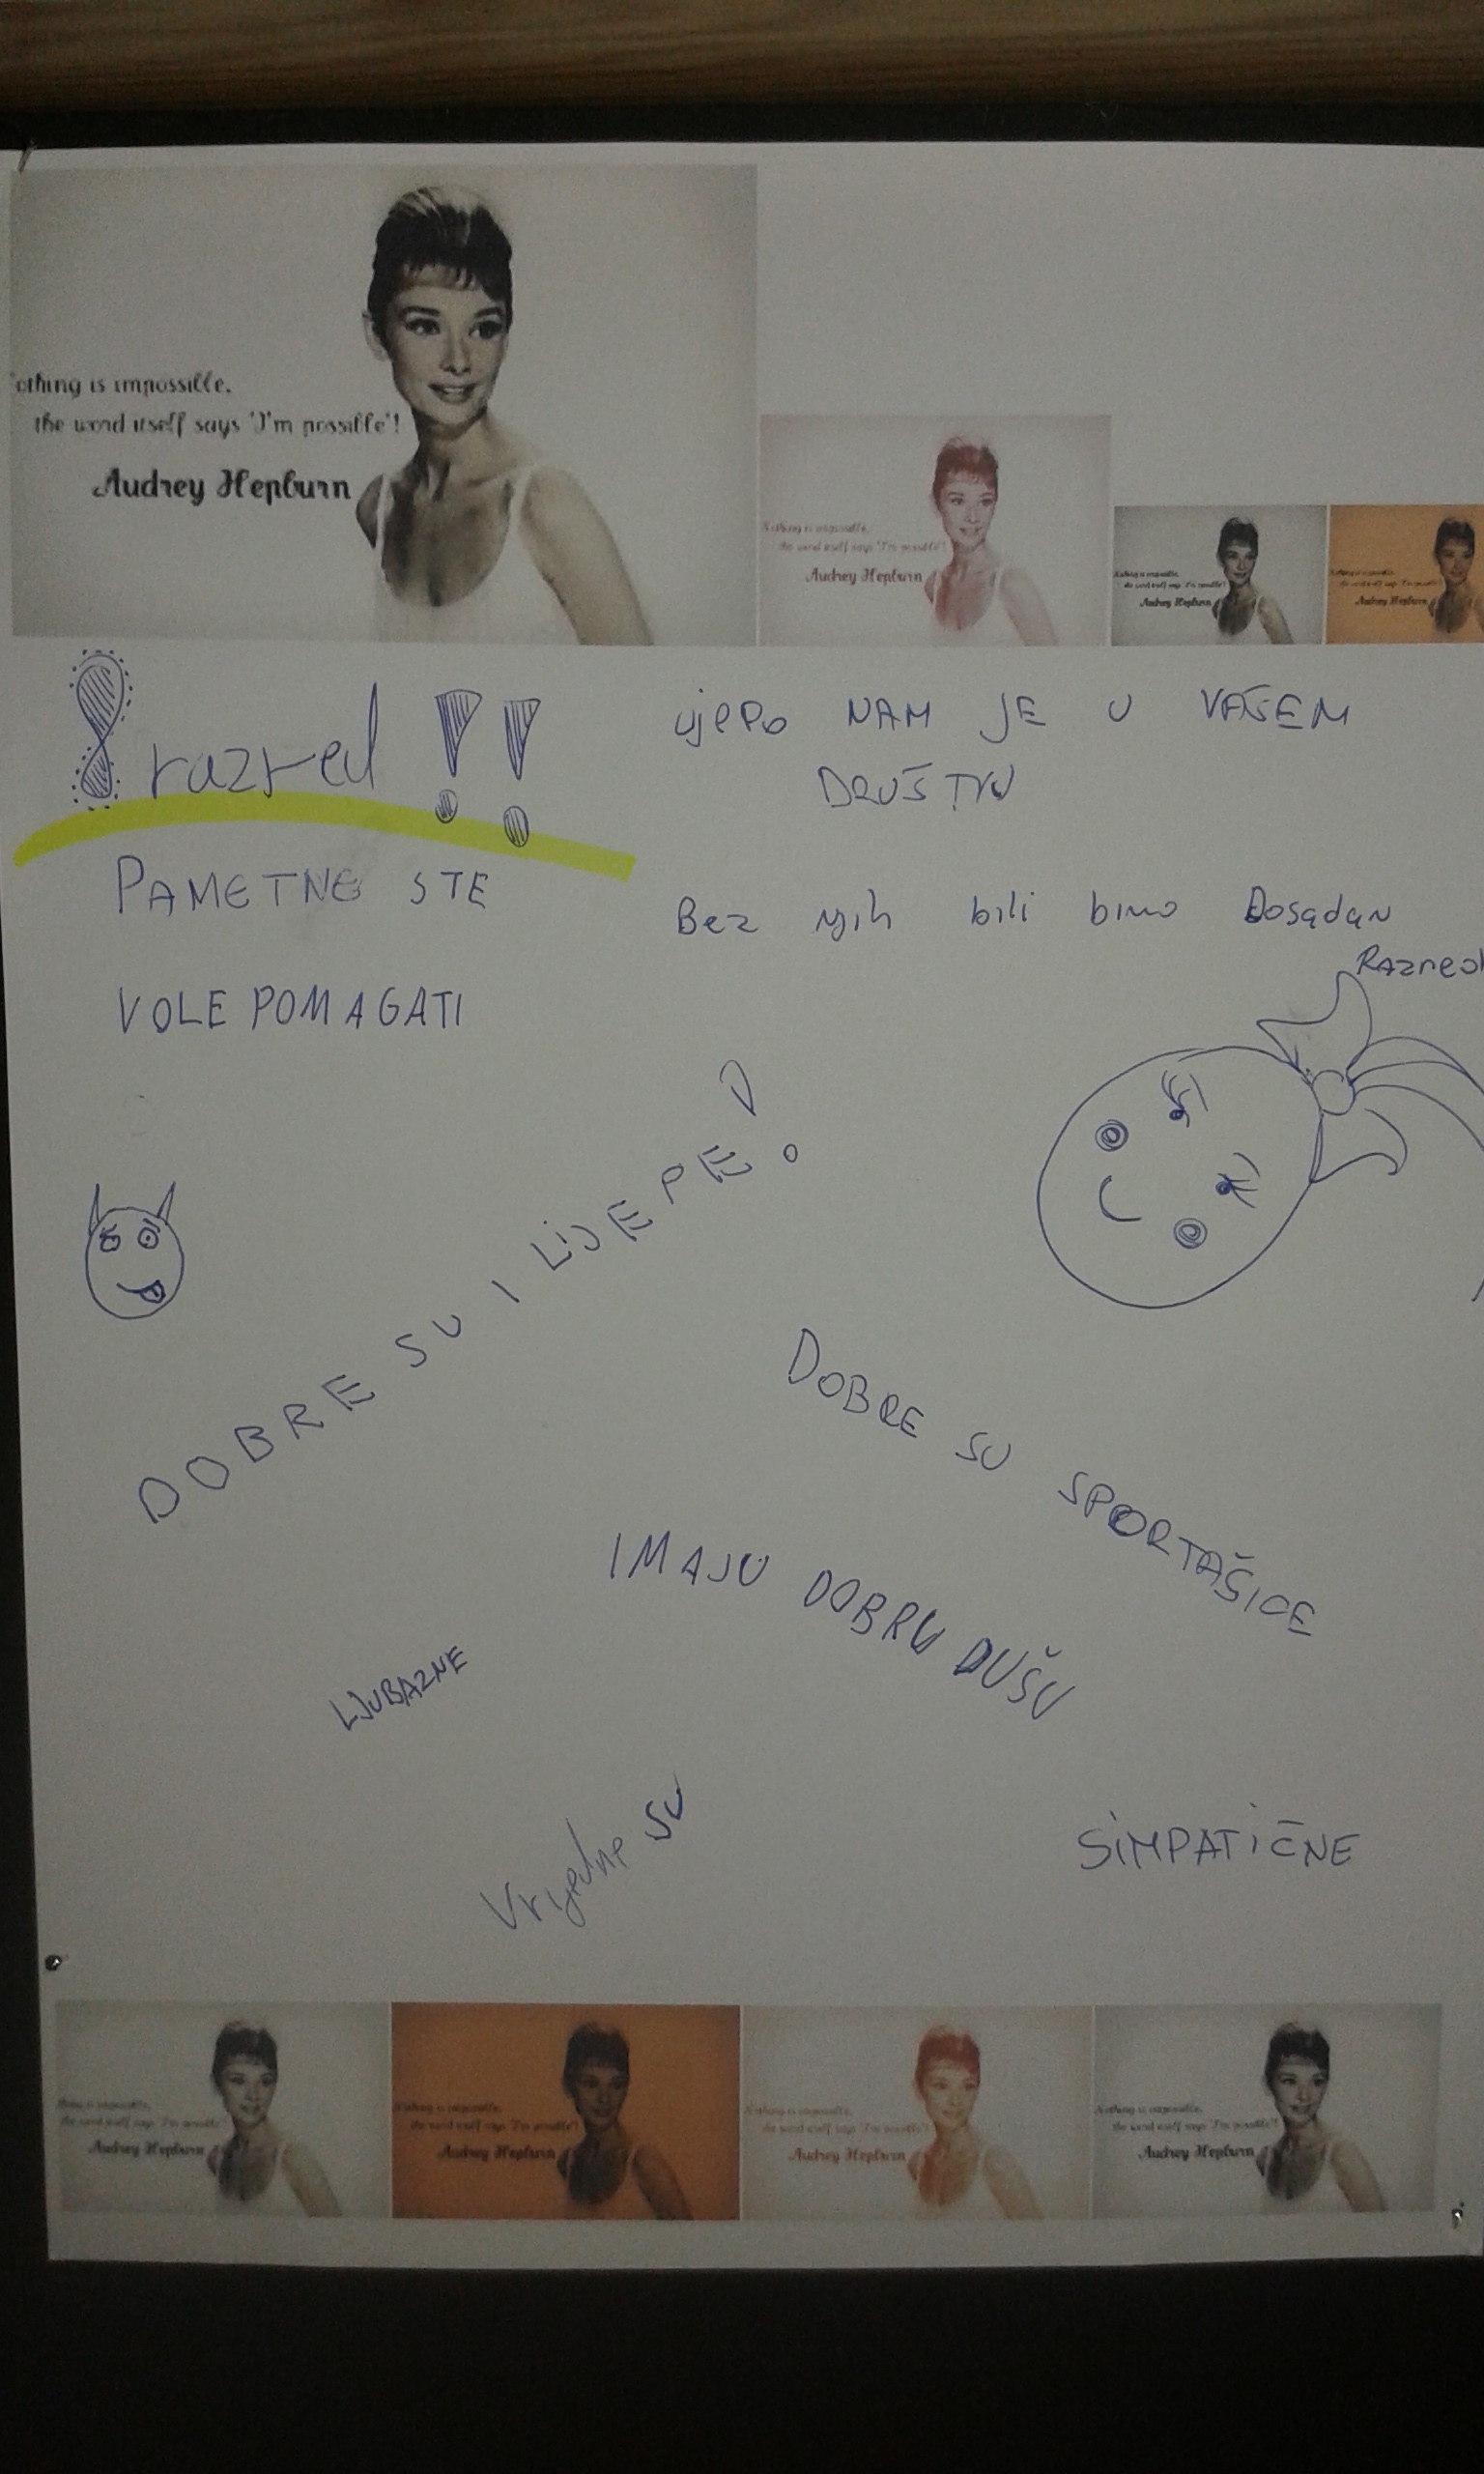 othing is impossible,
the word itself says 'I'm possible'!
Audrey Hepburn
Nothing is impossible,
the word itself says 'I'm possible'!
Audrey Hepburn
Nothing is impossible,
the word itself says 'I'm possible'!
Audrey Hepburn
Nothing is impossible,
the word itself says 'I'm possible'!
Audrey Hepburn
8 razred !!
LJEPO NAM JE U VAŠEM
DRUŠTVU
PAMETNE STE
Bez njih bili bismo Dosadan
Razred
VOLE POMAGATI
DOBRE SU I LIJEPE!
DOBRE SU SPORTAŠICE
IMAJU DOBRU DUŠU
LJUBAZNE
Vrijedne SU
SIMPATIČNE
Nothing is impossible,
the word itself says 'I'm possible'!
Audrey Hepburn
Nothing is impossible,
the word itself says 'I'm possible'!
Audrey Hepburn
Nothing is impossible,
the word itself says 'I'm possible'!
Audrey Hepburn
Nothing is impossible,
the word itself says 'I'm possible'!
Audrey Hepburn